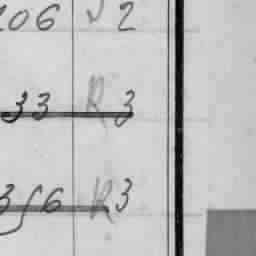 106 √ 2
33 R 3
356 R 3